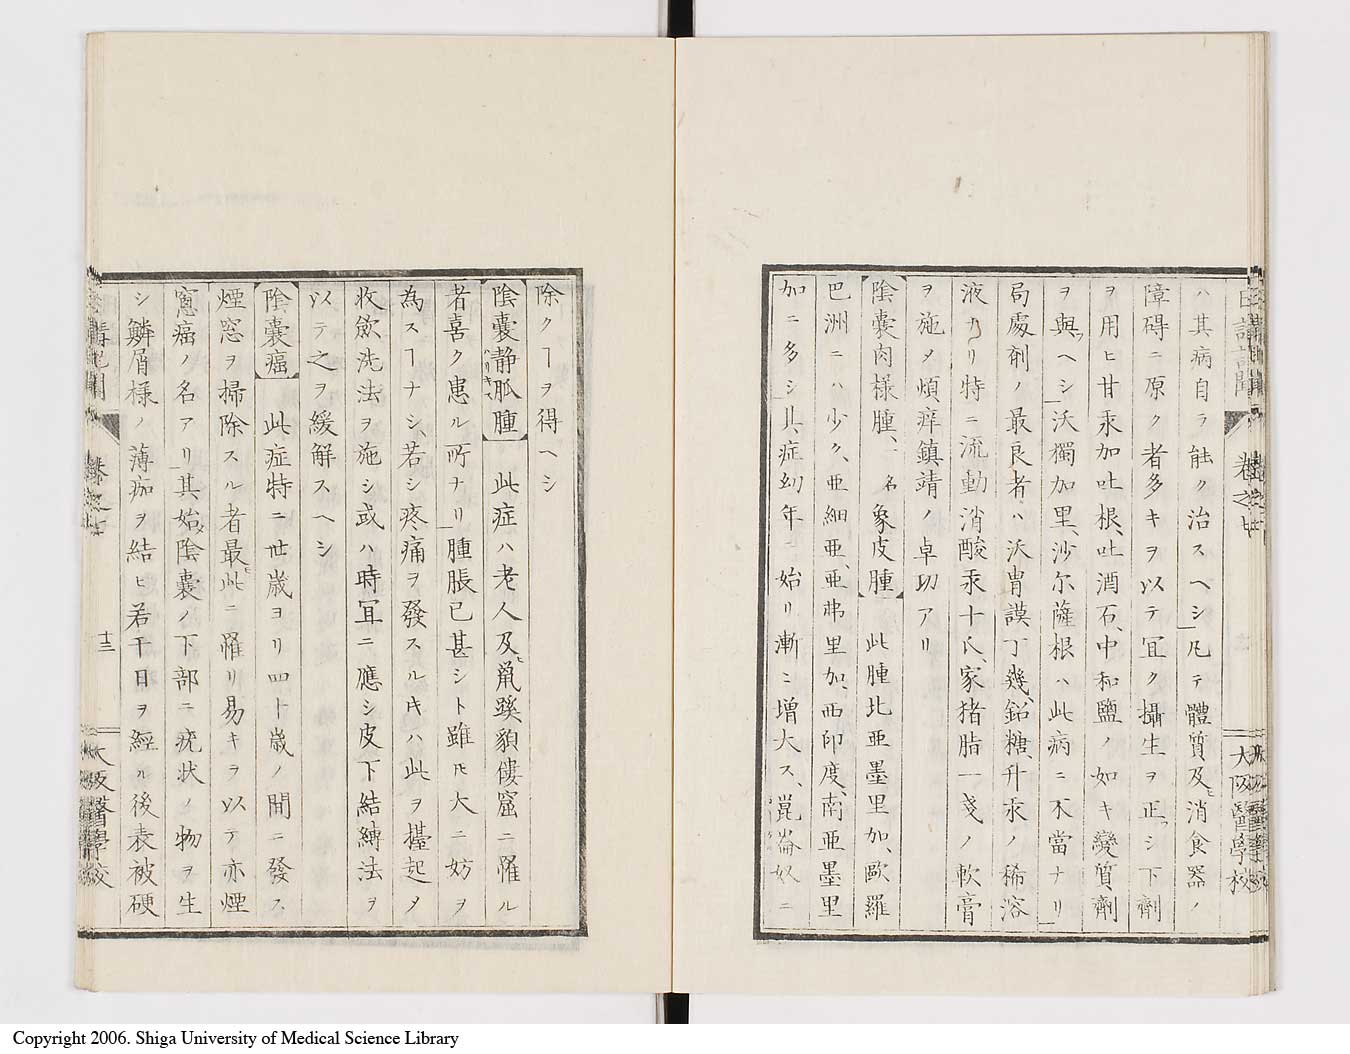 日講記聞 卷之七 大阪醫學校
ハ其病自ラ能ク治スヘシ凡テ體質及ヒ消食器ノ
障碍ニ原ク者多キヲ以テ冝ク攝生ヲ正シ下劑
ヲ用ヒ甘汞加吐根、吐酒石、中和鹽ノ如キ變質劑
ヲ與フヘシ沃獨加里、沙尓薩根ハ此病ニ不當ナリ
局處劑ノ最良者ハ沃胄謨丁幾、鉛糖、升汞ノ稀溶
液ナリ特ニ流動消酸汞十氏、家猪脂一戔ノ軟膏
ヲ施メ煩痒鎮靖ノ卓功アリ
陰嚢肉様腫、一名象皮腫 此腫北亜墨里加、歐羅
巴洲ニハ少ク、亜細亜、亜弗里加、西印度、南亜墨里
加ニ多シ其症幼年ニ始リ漸ニ増大ス、崑崙奴ニ
除クヿヲ得ヘシ
陰嚢静脈腫 此症ハ老人及ヒ鼠蹊貌僂窟ニ罹ル
者喜ク患ル所ナリ腫脹已甚シト雖𪜈大ニ妨ヲ
為スヿナシ、若シ疼痛ヲ發スルキハ此ヲ擡起メ
收歛洗法ヲ施シ或ハ時冝ニ應シ皮下結縛法ヲ
以テ之ヲ緩解スヘシ
陰嚢癌 此症特ニ丗歳ヨリ四十歳ノ間ニ發ス
煙窓ヲ掃除スル者最此ニ罹リ易キヲ以テ亦煙
窓癌ノ名アリ其始メ陰嚢ノ下部ニ疣状ノ物ヲ生
シ鱗屑様ノ薄痂ヲ結ヒ若干日ヲ經ル後表被硬
十三
大阪醫學校